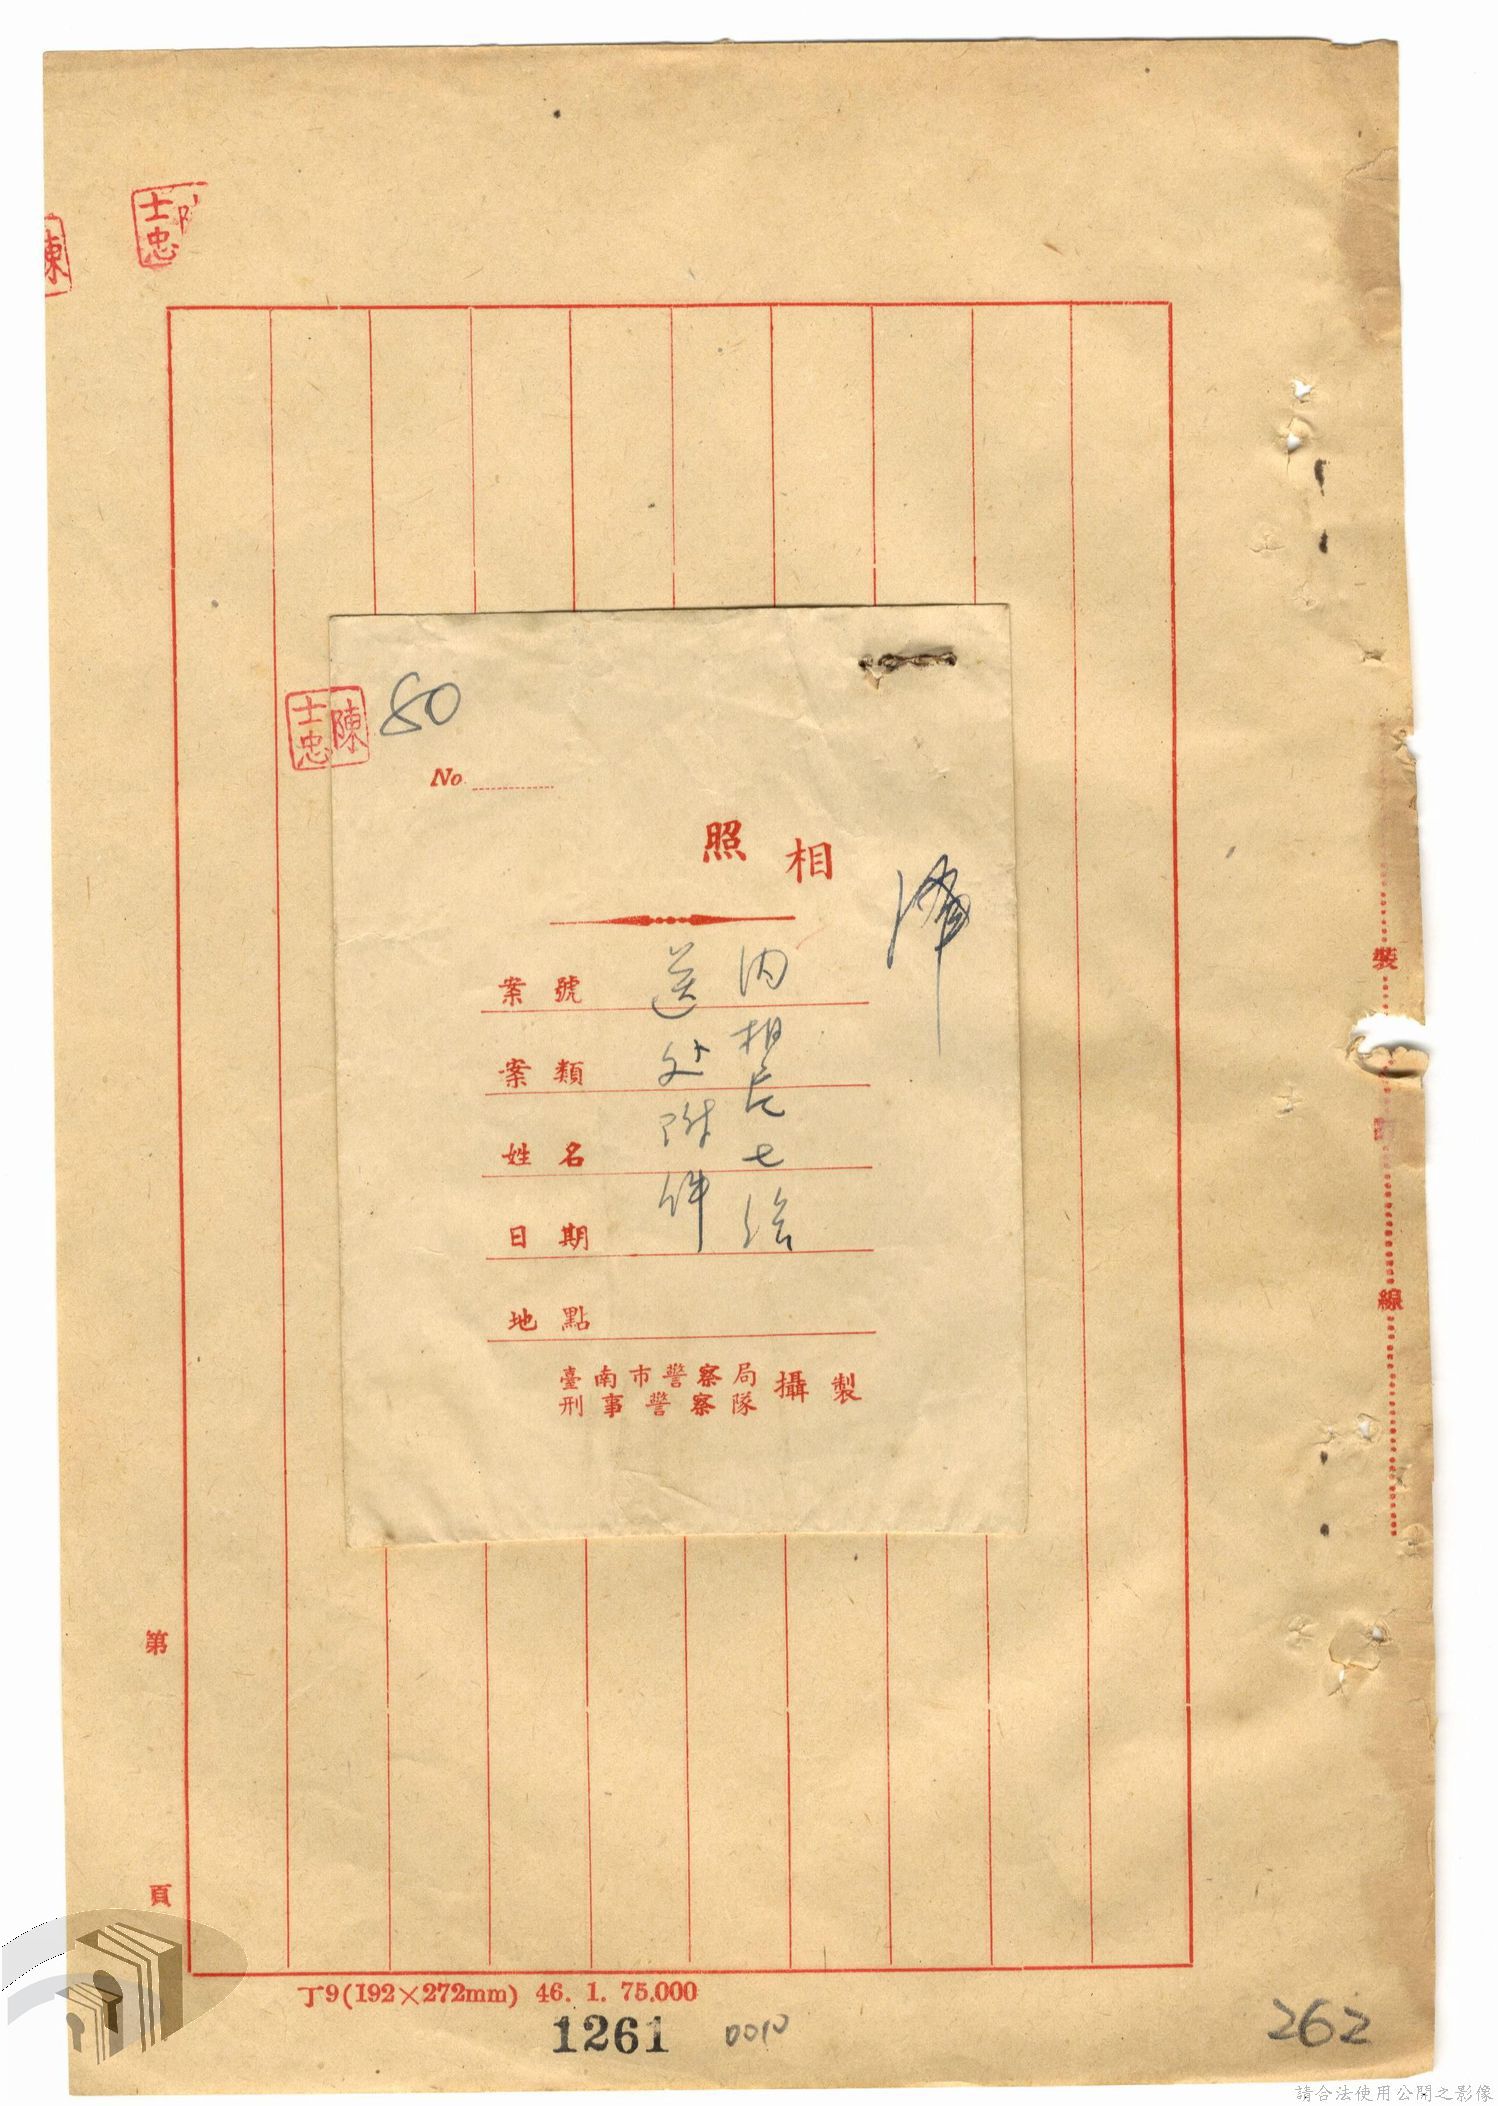 陳士忠
陳
80
陳士忠
No
相照
案號
案類
姓名
日期
地點
內相片七
送
附件
臺南市警察局
刑事警察隊
攝製
裝
線
第
頁
丁9(192×272mm) 46. 1. 75.000
1261
262
請合法使用公開之影像